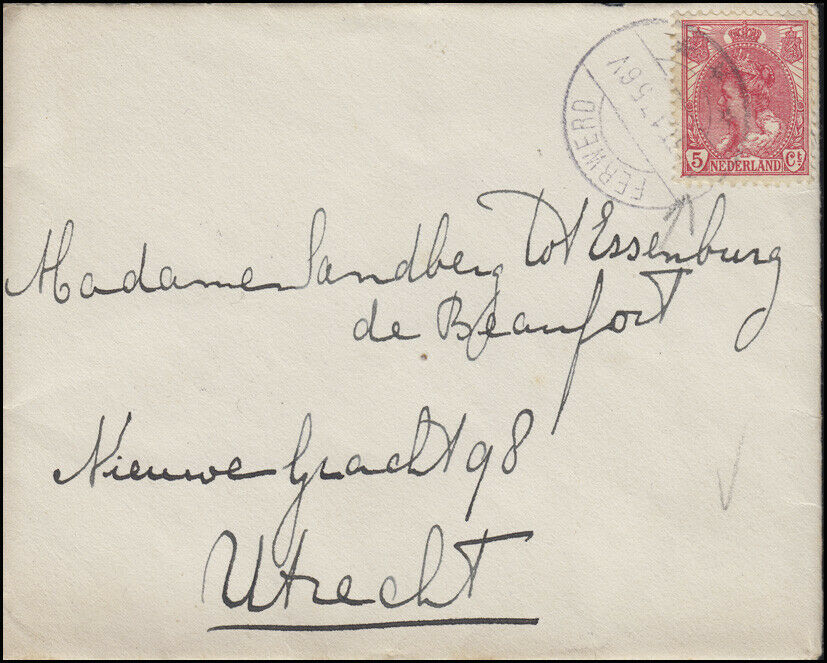 FERWERD
5 6V
5 Ct
NEDERLAND
Madame Sandberg Tot Essenburg
de Beaufort
Nieuwe Gracht 98
Utrecht